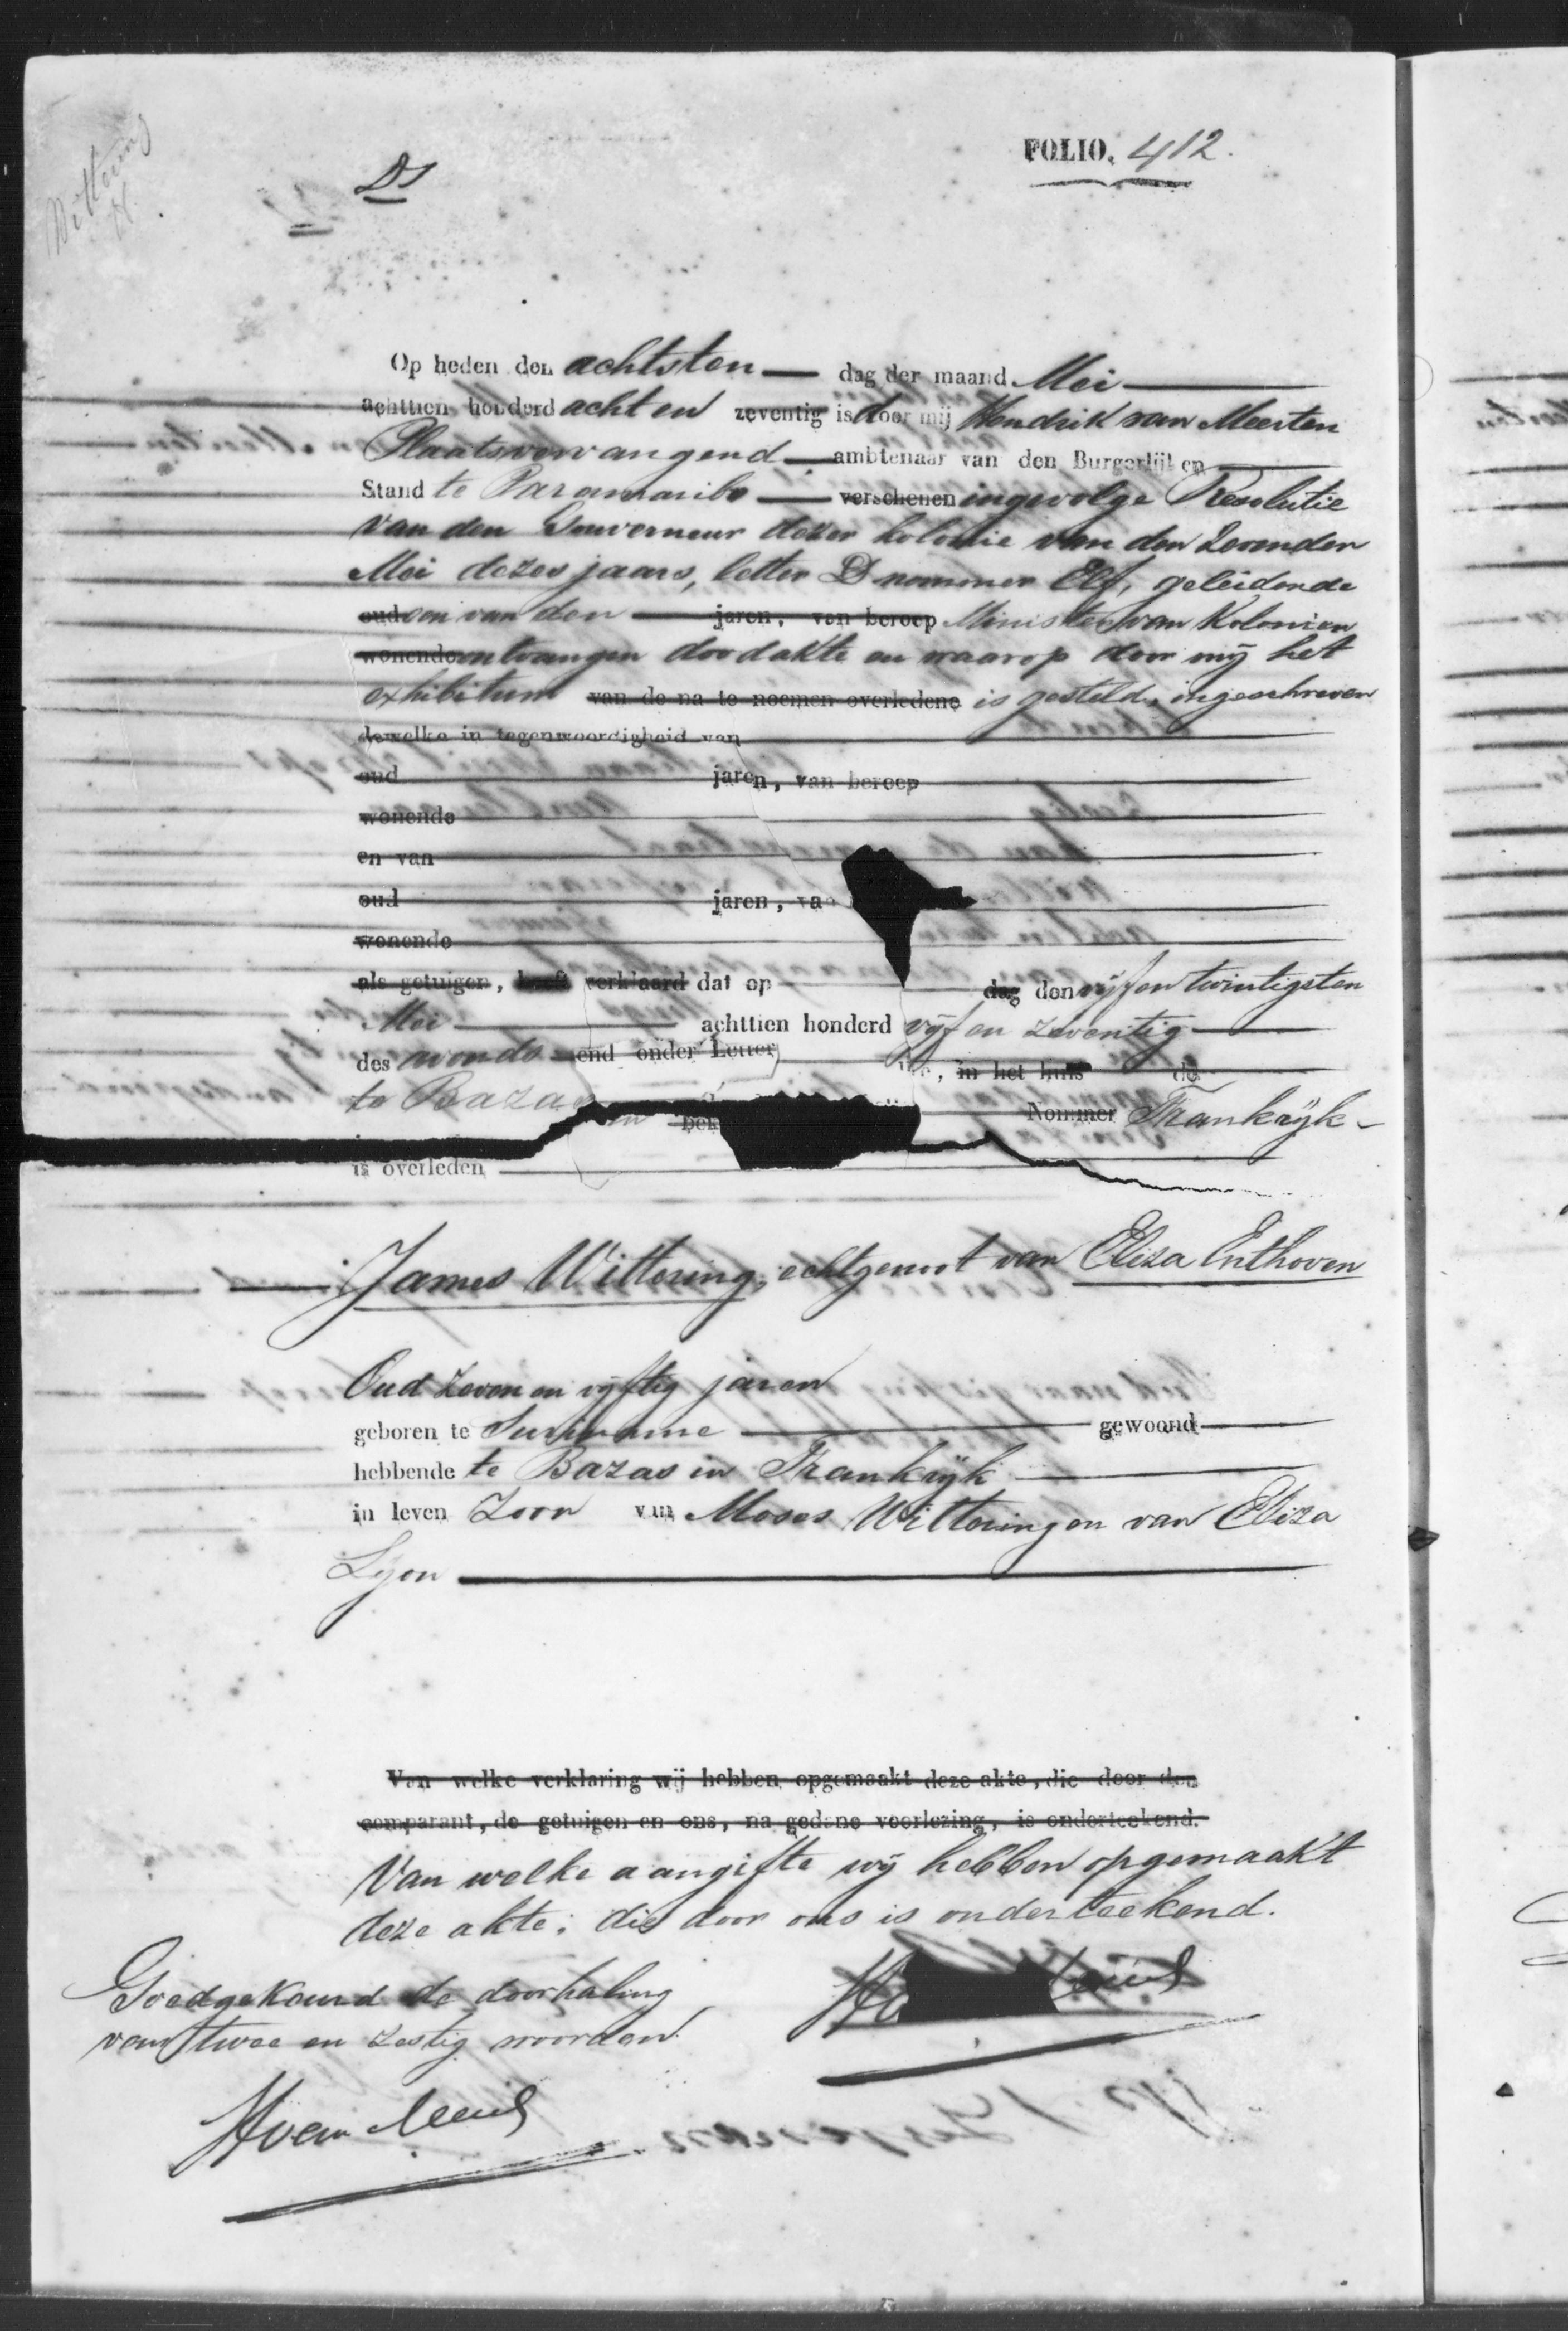 Wittering
FOLIO. 412.
Op heden den achtsten dag der maand Mei
achttien honderd acht en zeventig is door mij Hendrik van Meerten
Plaatsvervangend ambtenaar van den Burgerlijken
Stand te Paramaribo verschenen ingevolge Resolutie
van den Gouverneur dezer kolonie van den Zevenden
Mei dezes jaars, letter D nommer Elf, geleidende
oud een van den jaren, van beroep Minister van Kolonien
wonende ontvangen doodakte en waarop door mij het
exhibitum van de na te noemen overledene is gesteld, ingeschreven
dewelke in tegenwoordigheid van
oud jaren, van beroep
wonende
en van
oud jaren, va
wonende
als getuigen, heeft verklaard dat op dag den vijf en twintigsten
Mei achttien honderd vijf en zeventig
des avonds end onder Letter in het huis de
te Baza Nommer Frankrijk
is overleden
James Wittering, echtgenoot van Eliza Enthoven
Oud Zeven en vijftig jaren
geboren te Suriname gewoond
hebbende te Bazas in Frankrijk
in leven Zoon van Moses Wittering en van Eliza
Lyon
Van welke verklaring wij hebben opgemaakt deze akte, die door den
comparant, de getuigen en ons, na gedane voorlezing, is onderteekend.
Van welke aangifte wij hebben opgemaakt
deze akte; die door ons is onderteekend.
Goedgekeurd de doorhaling
van twee en zestig woorden.